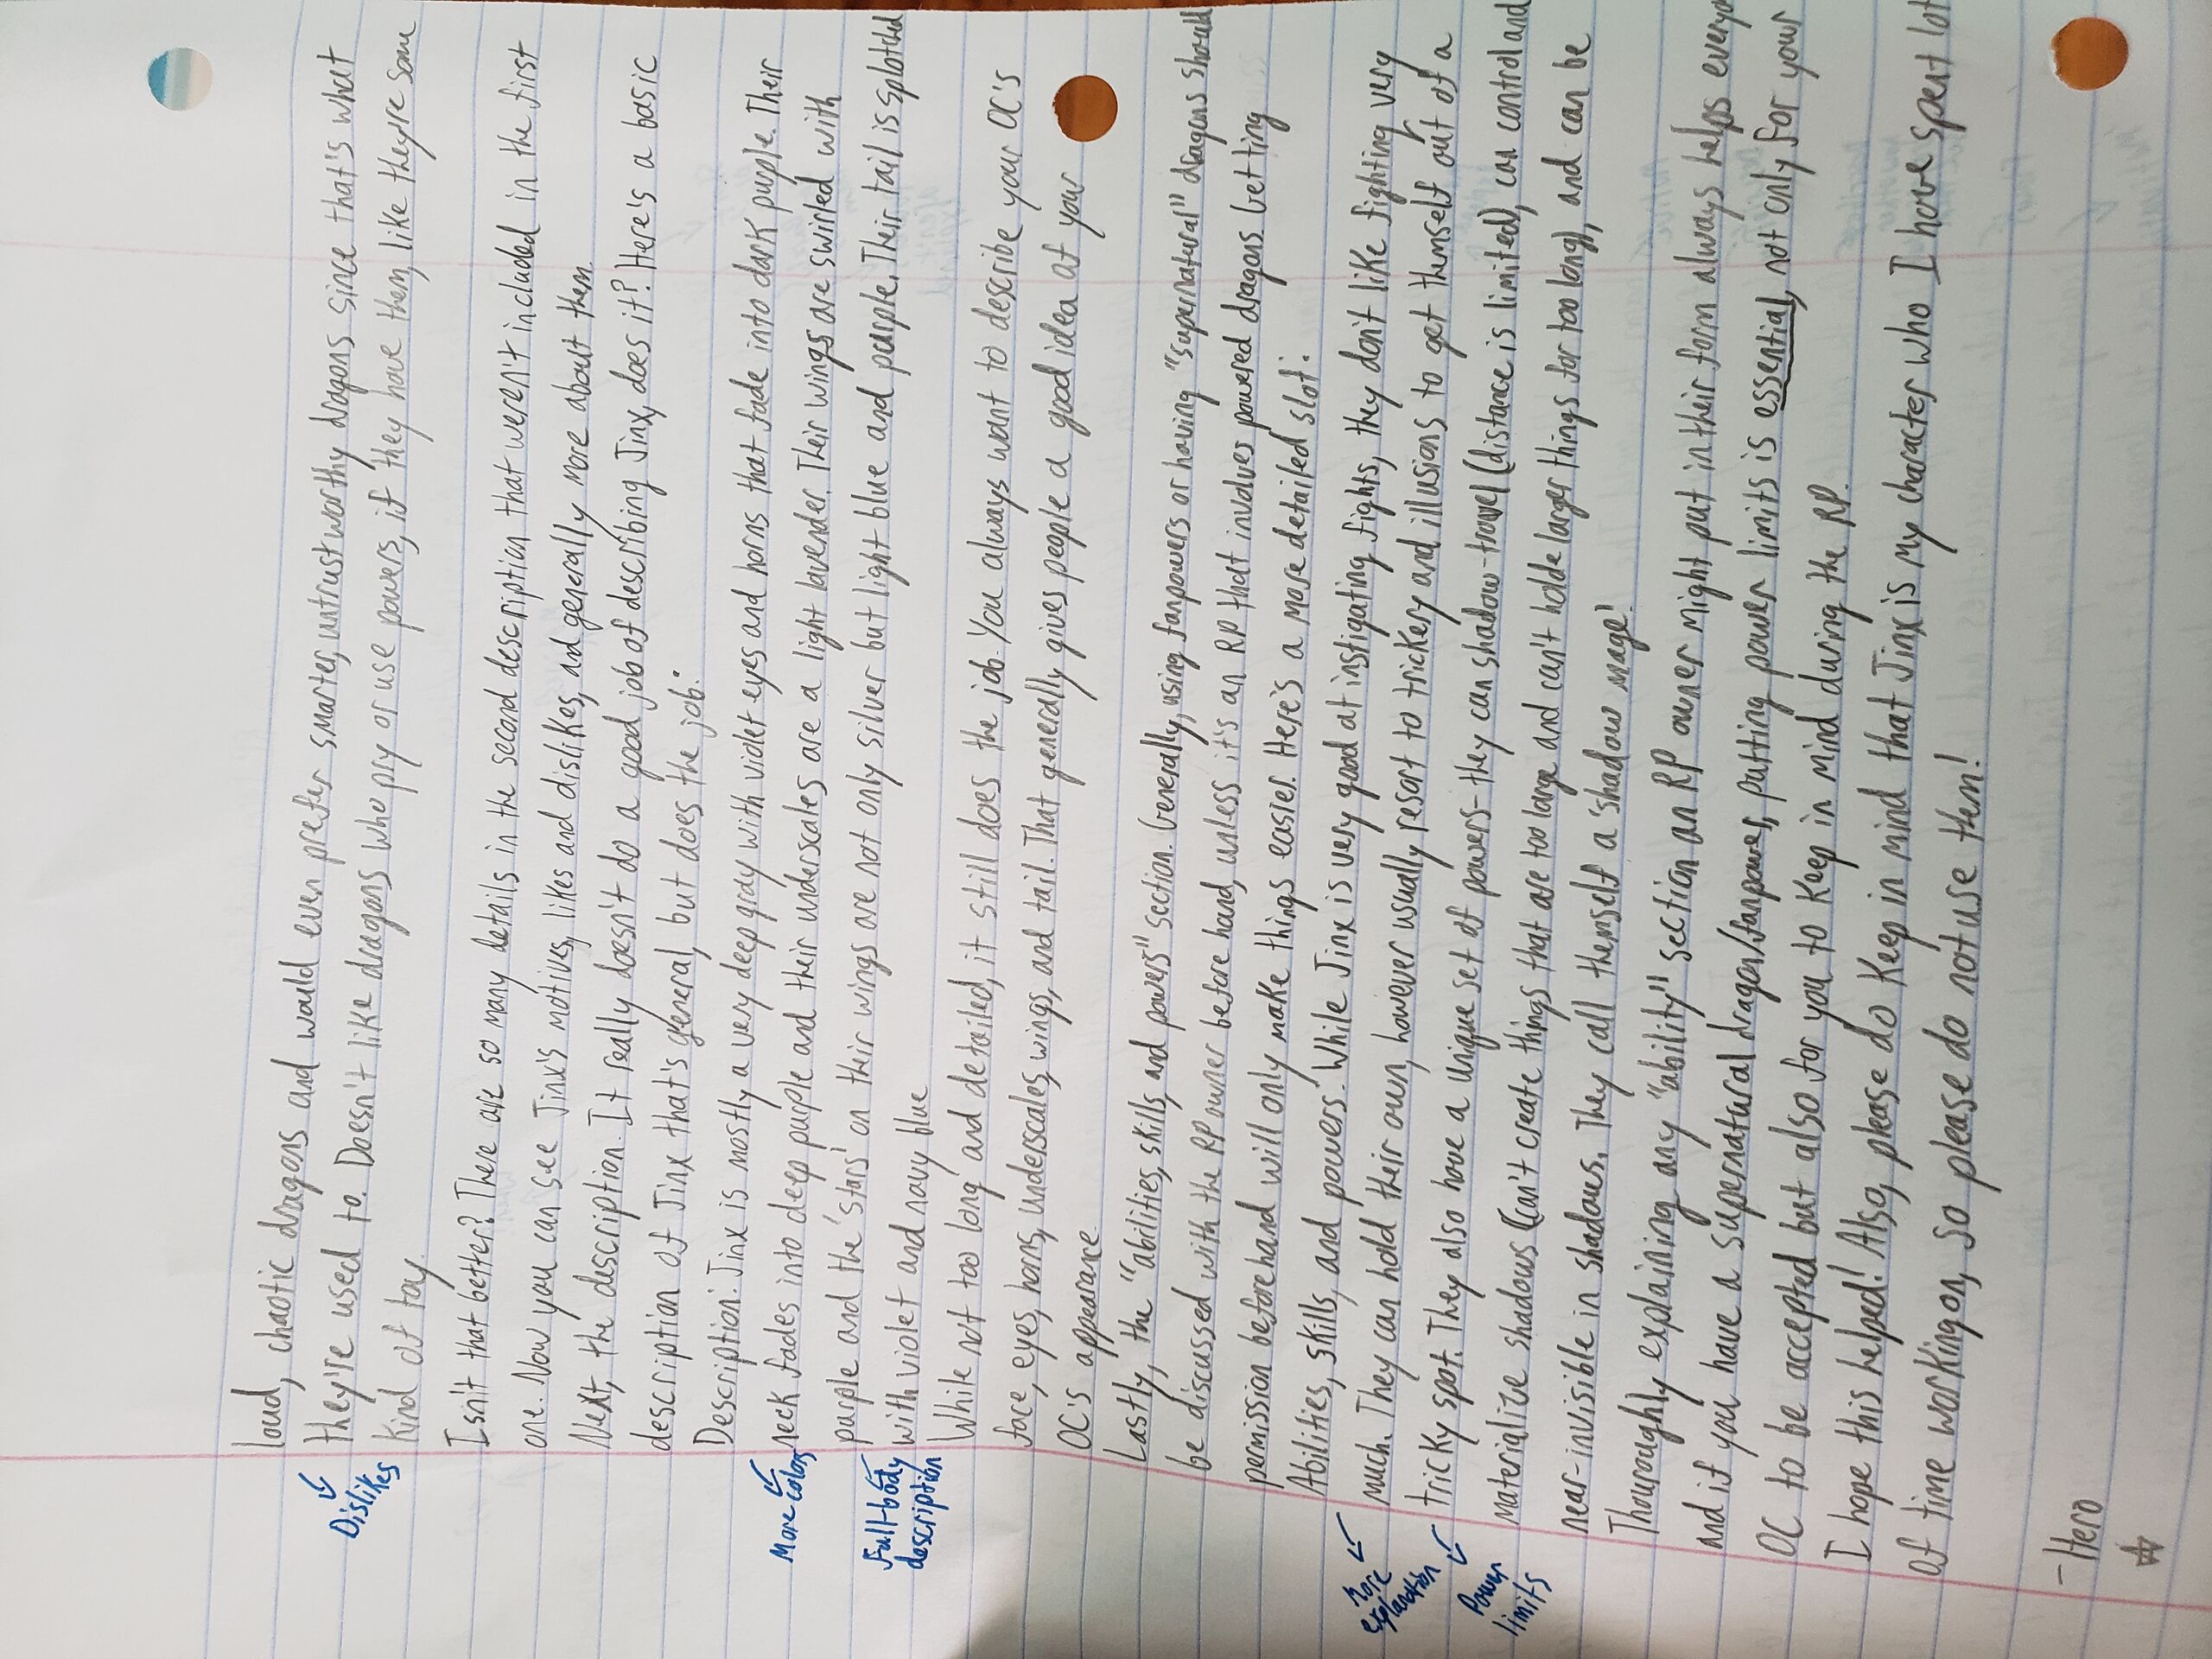 loud, chaotic dragons and would even prefer smarter, untrustworthy dragons since that's what
they're used to. Doesn't like dragons who pry or use powers, if they have them, like they're some
Dislikes
kind of toy.
Isn't that better? There are so many details in the second description that weren't included in the first
one. Now you can see Jinx's motives, likes and dislikes, and generally more about them.
Next, the description. It really doesn't do a good job of describing Jinx, does it? Here's a basic
description of Jinx that's general, but does the job:
Description: Jinx is mostly a very deep gray with violet eyes and horns that fade into dark purple. Their
neck fades into deep purple and their underscales are a light lavender. Their wings are swirled with
More colors
purple and the 'stars' on their wings are not only silver but light blue and purple. Their tail is splotched
with violet and navy blue
Full-body
description
While not too long and detailed, it still does the job. You always want to describe your OC's
face, eyes, horns, underscales, wings, and tail. That generally gives people a good idea of your
OC's appearance.
Lastly, the "abilities, skills, and powers" section. Generally, using fanpowers or having "supernatural" dragons should
be discussed with the RP owner before hand, unless it's an RP that involves powered dragons. Getting
permission beforehand will only make things easier. Here's a more detailed slot:
Abilities, skills, and powers: While Jinx is very good at instigating fights, they don't like fighting very
much. They can hold their own, however usually resort to trickery and illusions to get themself out of a
More
explanation
tricky spot. They also have a unique set of powers- they can shadow-travel (distance is limited), can control and
Power
limits
materialize shadows (can't create things that are too large and can't holde larger things for too long), and can be
near-invisible in shadows. They call themself a 'shadow mage'.
Thouroughly explaining any "ability" section an RP owner might put in their form always helps
and if you have a supernatural dragon/fanpower, putting power limits is essential, not only for your
OC to be accepted but also for you to keep in mind during the RP.
I hope this helped! Also, please do keep in mind that Jinx is my character who I have spent lot
of time working on, so please do not use them!
-Hero